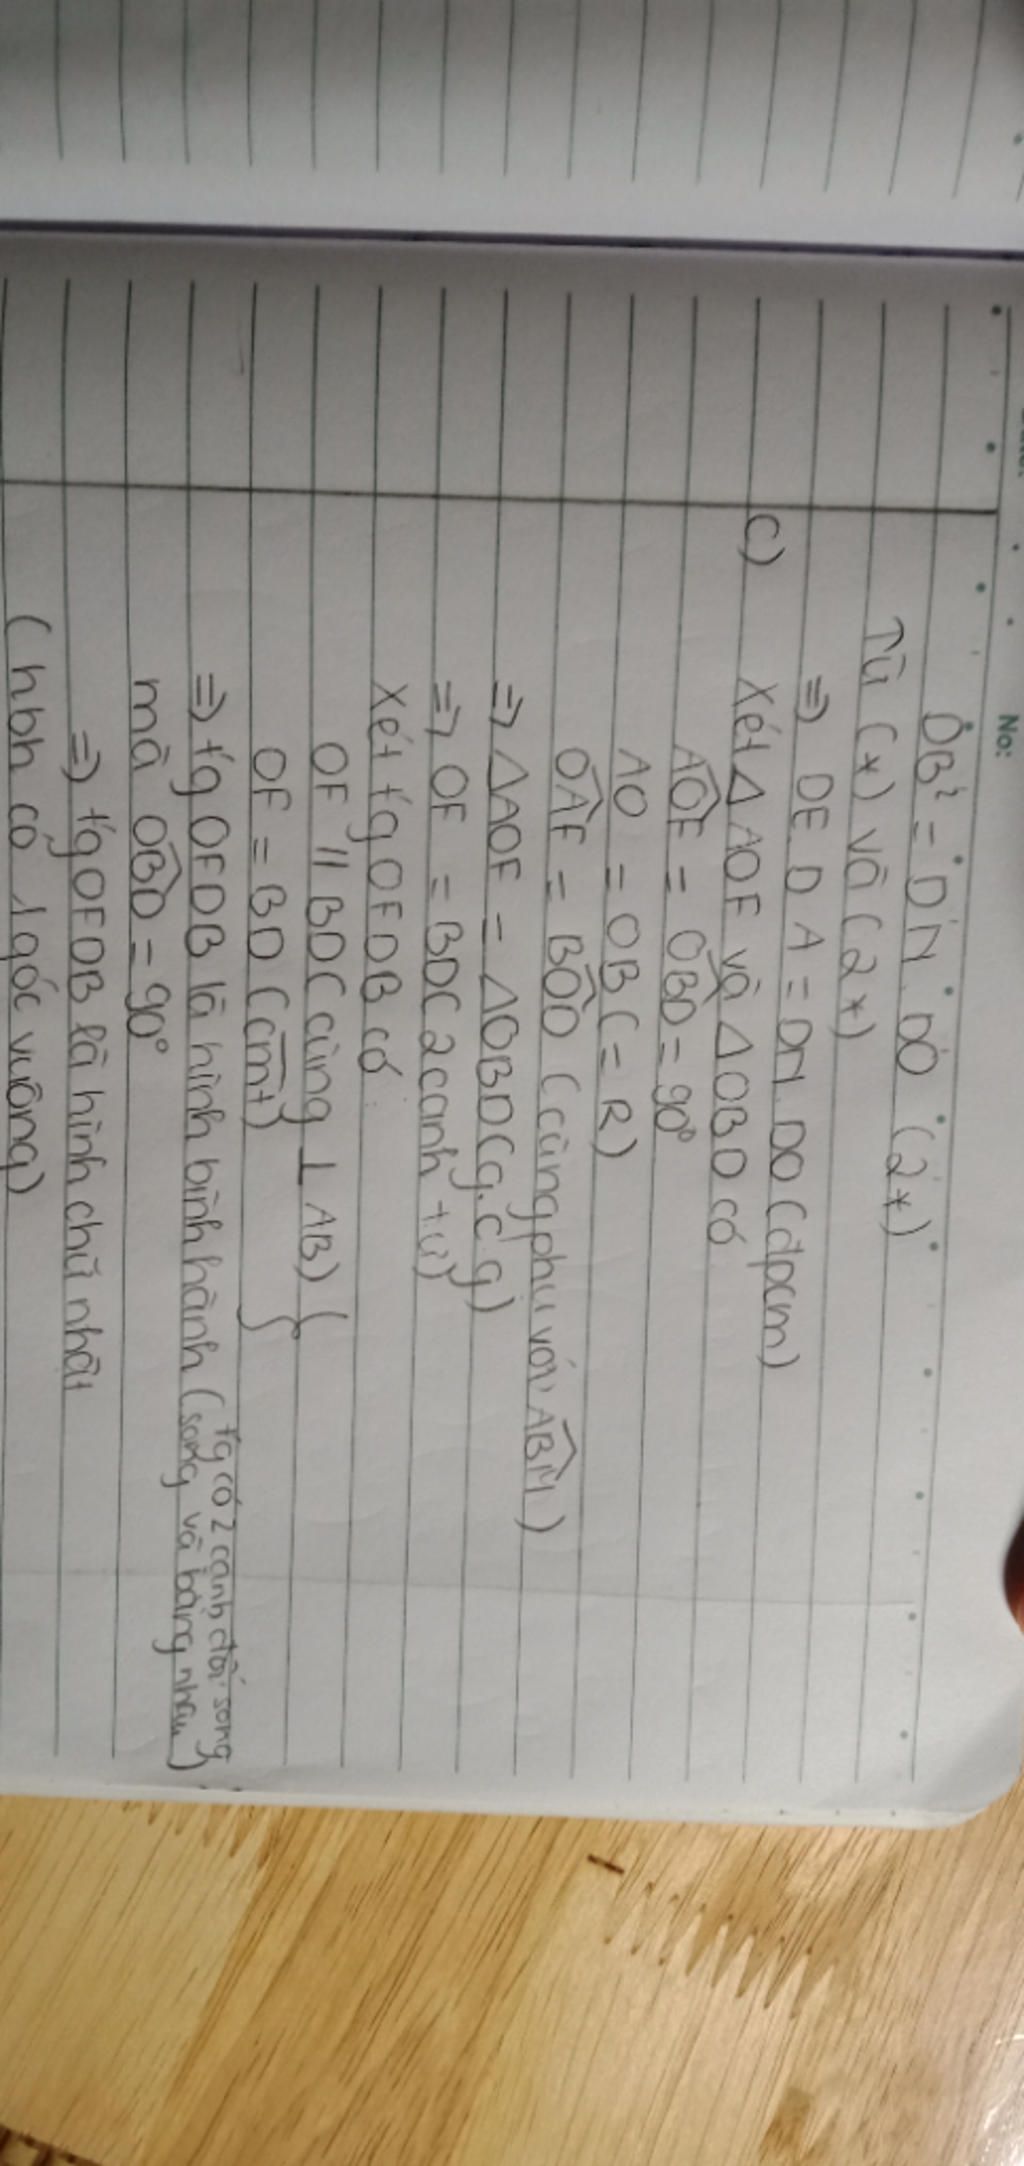 No:
DB² = DN. DO (2*)
Từ (*) và (2*)
=> DE. DA = DN. DO (đpcm)
c) Xét △AOF và △OBD có
AOF = OBD = 90°
AO = OB (= R)
OAF = BOD (cùng phụ với ABM)
=> △AOF = △OBD (g.c.g)
=> OF = BD (2 cạnh t.ư)
Xét tg OFDB có:
OF // BD (cùng ⊥ AB)
OF = BD (cmt)
=> tg OFDB là hình bình hành (tg có 2 cạnh đối song
song và bằng nhau)
mà OBD = 90°
=> tg OFDB là hình chữ nhật
(hbh có 1 góc vuông)